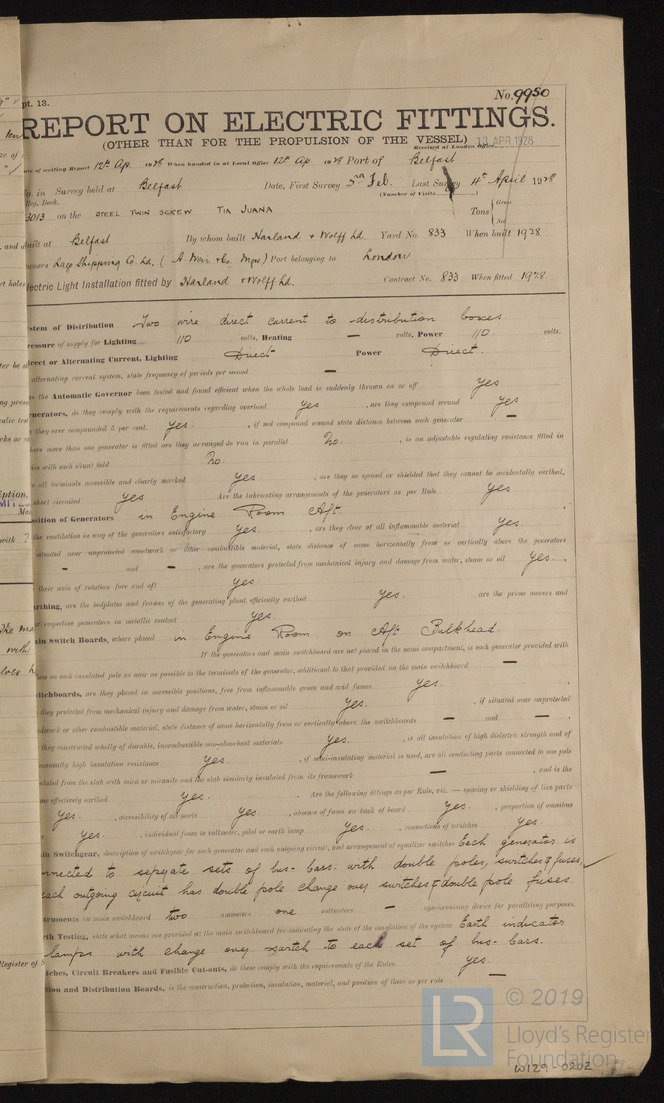 pt. 13.
No. 9950
REPORT ON ELECTRIC FITTINGS.
(OTHER THAN FOR THE PROPULSION OF THE VESSEL)
Received at London Office 13 APR 1928
ate of writing Report 12th Ap. 1928 When handed in at Local Office 12th Ap 1928 Port of Belfast
o. in Survey held at Belfast Date, First Survey 3rd Feb. Last Survey 4th April 1928
Reg. Book. (Number of Visits
3013 on the STEEL TWIN SCREW TIA JUANA Tons { Gross Net
uilt at Belfast By whom built Harland & Wolff Ld. Yard No. 833 When built 1928
wners Lago Shipping Co. Ld. (A. Weir & Co. Mgrs) Port belonging to London
lectric Light Installation fitted by Harland & Wolff Ld. Contract No. 833 When fitted 1928.
stem of Distribution Two wire direct current to distribution boxes.
ressure of supply for Lighting 110 volts, Heating — volts, Power 110 volts.
irect or Alternating Current, Lighting Direct Power Direct.
alternating current system, state frequency of periods per second —
the Automatic Governor been tested and found efficient when the whole load is suddenly thrown on or off yes
enerators, do they comply with the requirements regarding overload yes, are they compound wound yes
they over compounded 5 per cent. yes., if not compound wound state distance between each generator —
here more than one generator is fitted are they arranged to run in parallel No., is an adjustable regulating resistance fitted in
ies with each shunt field No.
all terminals accessible and clearly marked yes., are they so spaced or shielded that they cannot be accidentally earthed,
short circuited yes Are the lubricating arrangements of the generators as per Rule yes.
osition of Generators in Engine Room Aft.
the ventilation in way of the generators satisfactory yes., are they clear of all inflammable material yes.
situated near unprotected woodwork or other combustible material, state distance of same horizontally from or vertically above the generators
— and —, are the generators protected from mechanical injury and damage from water, steam or oil yes.
their axis of rotation fore and aft yes.
arthing, are the bedplates and frames of the generating plant efficiently earthed yes. are the prime movers and
r respective generators in metallic contact yes.
ain Switch Boards, where placed in Engine Room on Aft Bulkhead.
If the generators and main switchboard are not placed in the same compartment, is each generator provided with
use on each insulated pole as near as possible to the terminals of the generator, additional to that provided on the main switchboard —
itchboards, are they placed in accessible positions, free from inflammable gases and acid fumes yes.
they protected from mechanical injury and damage from water, steam or oil yes., if situated near unprotected
dwork or other combustible material, state distance of same horizontally from or vertically above the switchboards — and —,
they constructed wholly of durable, incombustible non-absorbent materials yes., is all insulation of high dielectric strength and of
manently high insulation resistance yes., if semi-insulating material is used, are all conducting parts connected to one pole
ulated from the slab with mica or micanite and the slab similarly insulated from its framework —, and is the
me effectively earthed yes. Are the following fittings as per Rule, viz.:— spacing or shielding of live parts
yes., accessibility of all parts yes., absence of fuses on back of board yes., proportion of omnibus
yes., individual fuses to voltmeter, pilot or earth lamp yes., connections of switches yes.
ain Switchgear, description of switchgear for each generator and each outgoing circuit, and arrangement of equalizer switches Each generator is
nnected to seperate sets of bus-bars with double poles, switches & fuses,
ach outgoing circuit has double pole change over switches & double pole fuses.
struments on main switchboard two ammeters one voltmeters — synchronising device for paralleling purposes.
rth Testing, state what means are provided at the main switchboard for indicating the state of the insulation of the system Earth indicator
lamps with change over switch to each set of bus-bars.
itches, Circuit Breakers and Fusible Cut-outs, do these comply with the requirements of the Rules yes.
tion and Distribution Boards, is the construction, protection, insulation, material, and position of these as per rule —
LR
© 2019
Lloyd's Register
Foundation
W129-0202